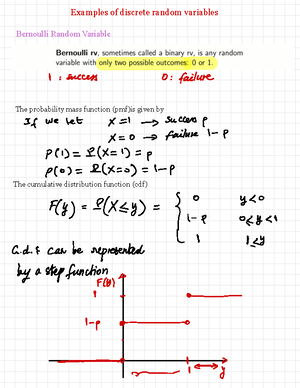 Examples of discrete random variables
Bernoulli Random Variable
Bernoulli rv, sometimes called a binary rv, is any random
variable with only two possible outcomes: 0 or 1.
1 : success 0: failure
The probability mass function (pmf)is given by
If we let X=1 → success p
X=0 → failure 1-p
P(1) = P(X=1) = p
P(0) = P(X=0) = 1-p
The cumulative distribution function (cdf)
F(y) = P(X≤y) = { 0 y<0
1-p 0≤y<1
1 1≤y
C.d.f can be represented
by a step function
F(y)
1
1-p
1 y